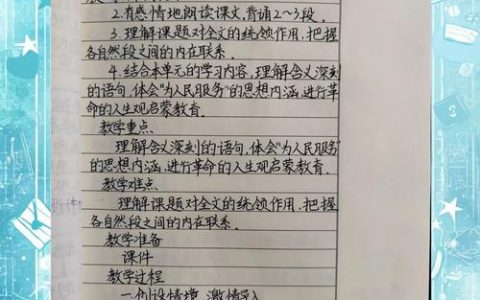 2.有感情地朗读课文,背诵2~3段.
3.理解课题对全文的统领作用,把握
各自然段之间的内在联系.
4.结合本单元的学习内容,理解含义深刻
的语句,体会“为人民服务”的思想内涵,进行革
命的人生观启蒙教育.
教学重点、
理解含义深刻的语句,体会“为人民服务”
的思想内涵,进行革命的人生观启蒙教育.
教学难点、
理解课题对全文的统领作用,把握
各自然段之间的内在联系.
教学准备
课件
教学过程
一.创设情境,激情导入